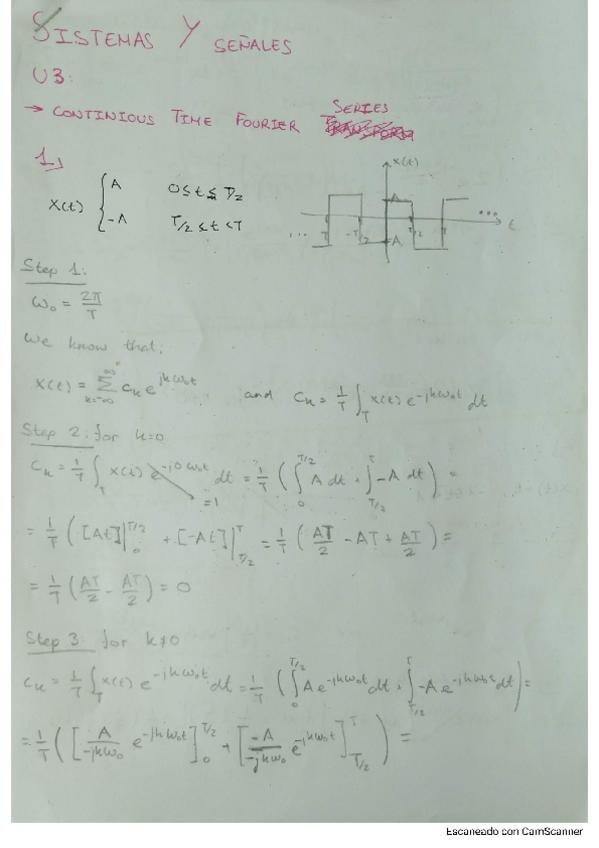 SISTEMAS Y SEÑALES
U3:
→ CONTINIOUS TIME FOURIER SERIES
1,
x(t) { A 0 ≤ t ≤ T/2
-A T/2 ≤ t < T
x(t)
A
... -T -T/2 -A T/2 T ... t
Step 1:
ω₀ = 2π/T
We know that:
x(t) = ∑_{k=-∞}^{∞} cₖ e^{jkω₀t} and cₖ = 1/T ∫_T x(t) e^{-jkω₀t} dt
Step 2: for k=0
cₖ = 1/T ∫_T x(t) e^{-j0ω₀t} dt = 1/T ( ∫_0^{T/2} A dt + ∫_{T/2}^{T} -A dt ) =
=1
= 1/T ( [At]|_0^{T/2} + [-At]|_{T/2}^{T} = 1/T ( AT/2 - AT + AT/2 ) =
= 1/T ( AT/2 - AT/2 ) = 0
Step 3 for k≠0
cₖ = 1/T ∫_T x(t) e^{-jkω₀t} dt = 1/T ( ∫_0^{T/2} A e^{-jkω₀t} dt + ∫_{T/2}^{T} -A e^{-jkω₀t} dt ) =
= 1/T ( [ A/-jkω₀ e^{-jkω₀t} ]_0^{T/2} + [ -A/-jkω₀ e^{-jkω₀t} ]_{T/2}^{T} ) =
Escaneado con CamScanner